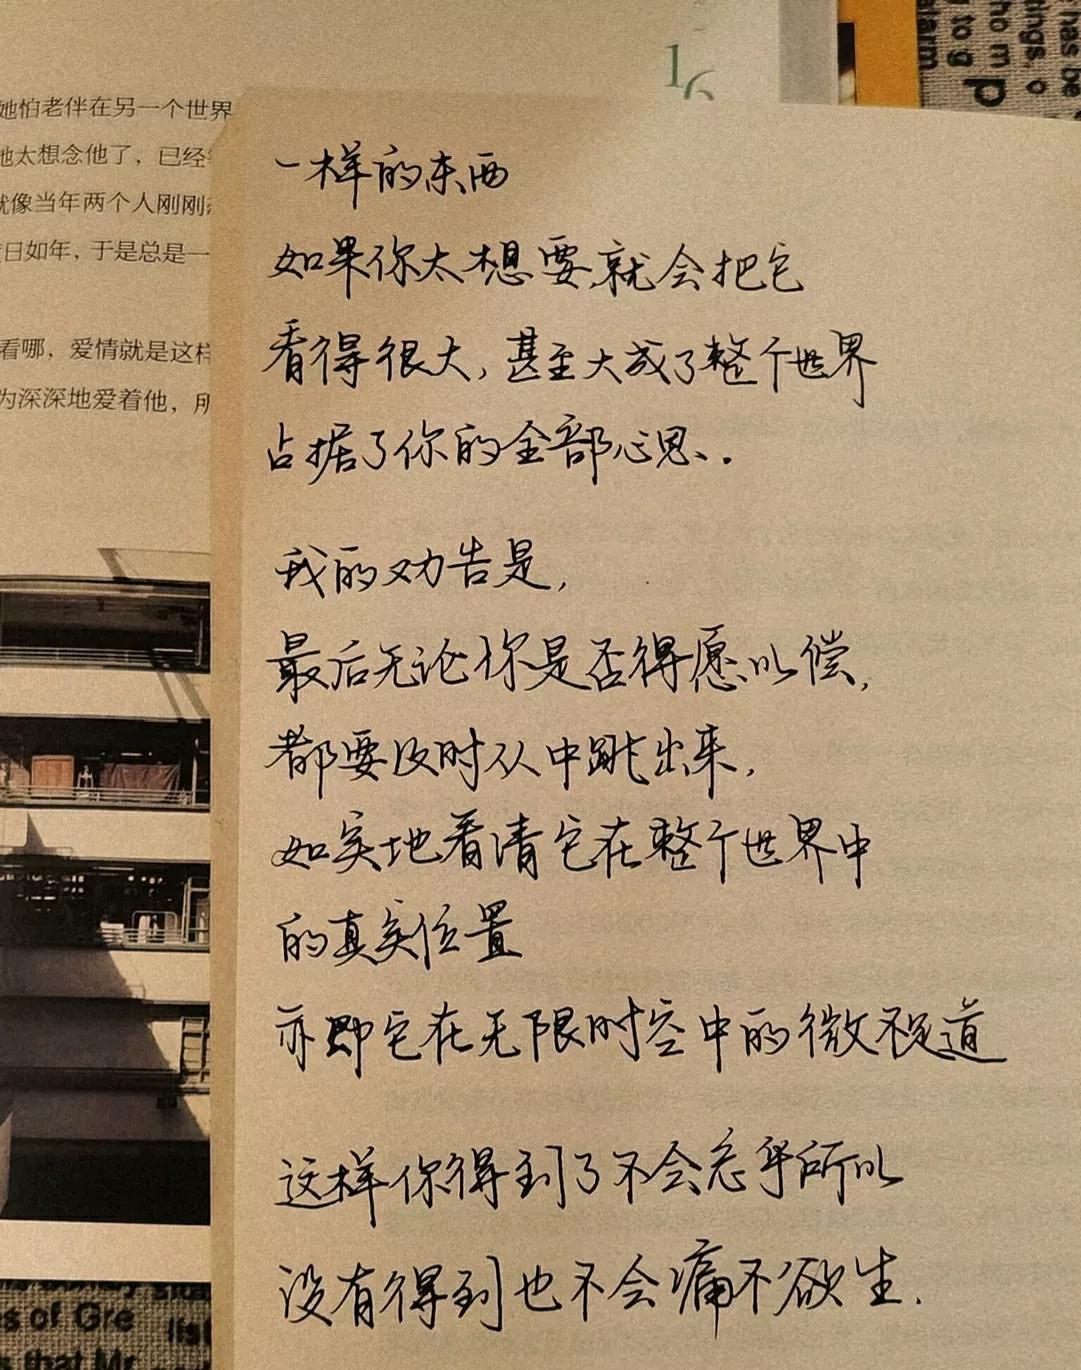 16
她怕老伴在另一个世界
她太想念他了，已经
就像当年两个人刚刚
日如年，于是总是一
看哪，爱情就是这样
为深深地爱着他，所
一样的东西
如果你太想要,就会把它
看得很大,甚至大成了整个世界
占据了你的全部心思..
我的劝告是,
最后无论你是否得愿以偿,
都要及时从中跳出来,
如实地看清它在整个世界中
的真实位置
亦即它在无限时空中的微不足道
这样你得到了不会忘乎所以
没有得到也不会痛不欲生.
has be
tings, o
ho m
p
y to g
alarm
s of Gre
list
that Mr